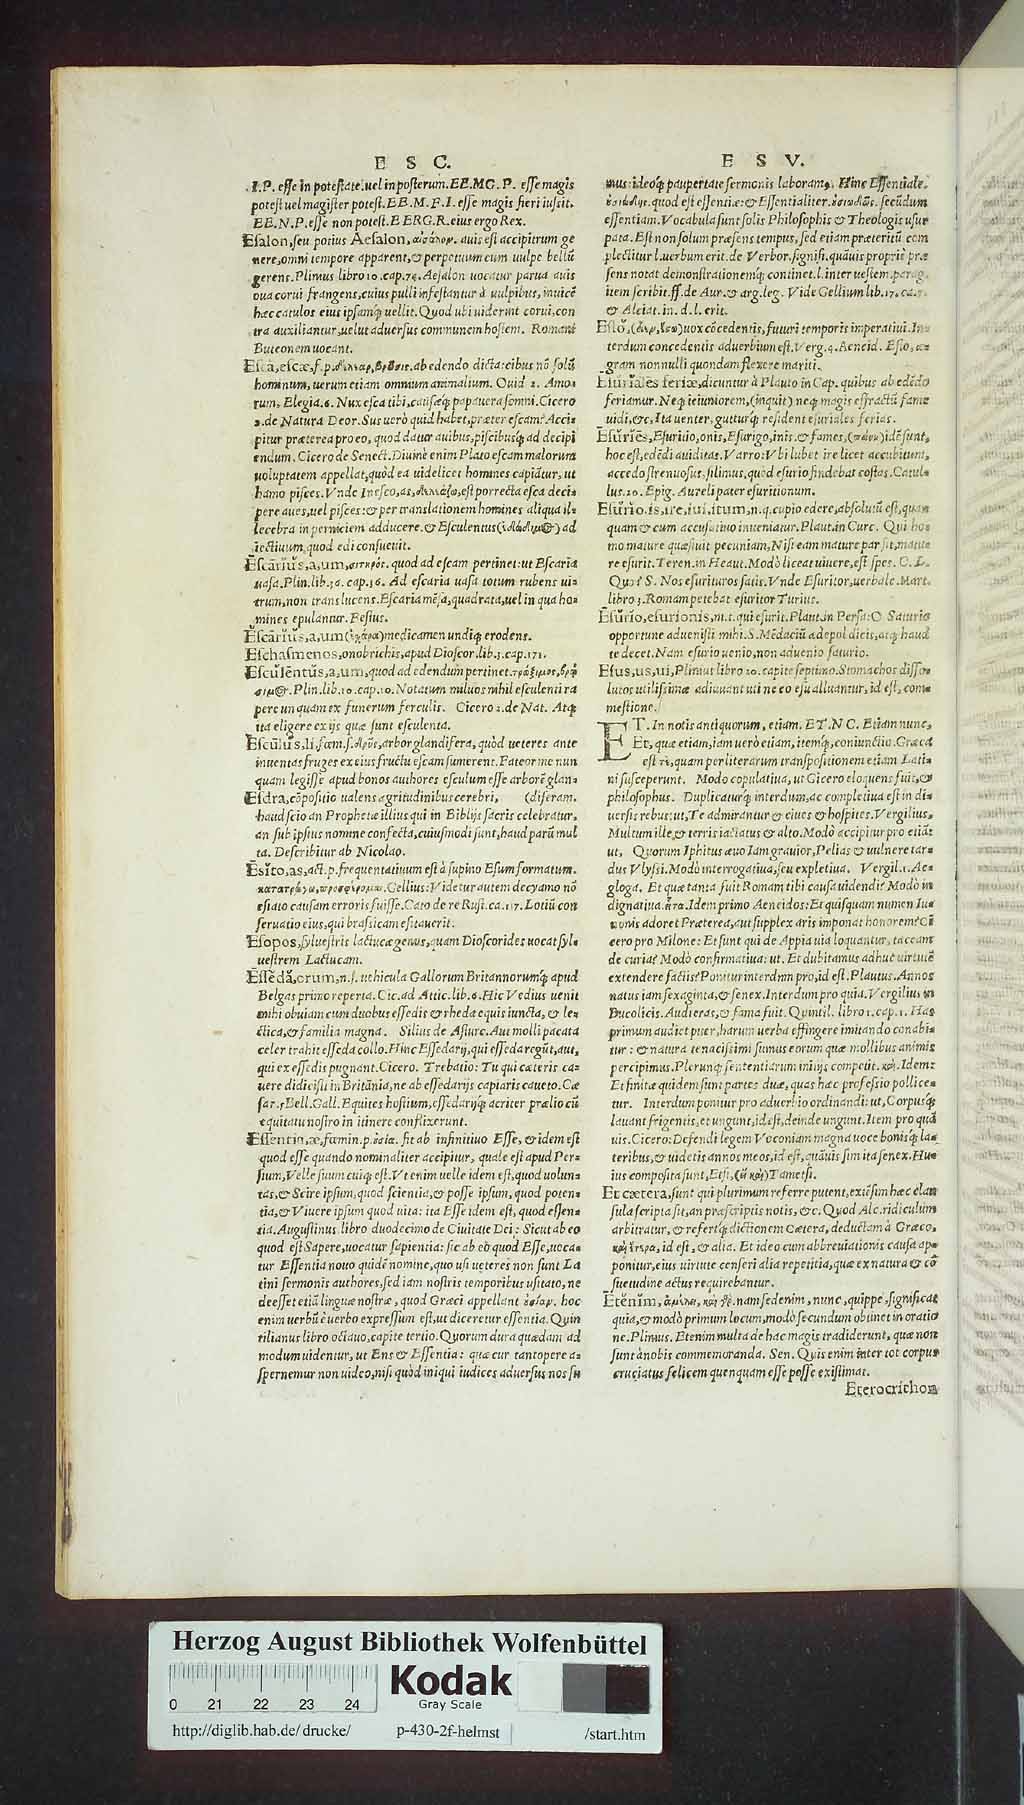 E S C.
.I.P. esse in potestate. uel in posterum. EE.MG.P. esse magis
potest uel magister potest. EE.M.F.I. esse magis fieri iussit.
EE.N.P. esse non potest. EERG.R. eius ergo Rex.
Esalon, seu potius Aesalon, αἰσάλων. auis est accipitrum ge
nere, omni tempore apparens, & perpetuum cum uulpe bellũ
gerens. Plinius libro 10. cap. 74. Aesalon uocatur parua auis
oua corui frangens, cuius pulli infestantur à uulpibus, inuicẽ
hæc catulos eius ipsamq́ uellit. Quod ubi uiderint corui, con
tra auxiliantur, uelut aduersus communem hostem. Romani
Buteonem uocant.
Esca, escæ, f.p. ab edendo dicta: cibus nõ solũ
hominum, uerum etiam omnium animalium. Ouid 2. Amo-
rum, Elegia. 6. Nux esca tibi, causæq́ papauera somni. Cicero
2. de Natura Deor. Sus uerò quid habet, præter escam? Acci-
pitur præterea pro eo, quod datur auibus, piscibusq́ ad decipi
endum. Cicero de Senect. Diuinè enim Plato escam malorum
uoluptatem appellat, quòd ea uidelicet homines capiãtur, ut
hamo pisces. Vnde Inesco, as, est porrecta esca deci-
pere aues, uel pisces: & per translationem homines aliqua il-
lecebra in perniciem adducere. & Esculentus ad
iectiuum, quod edi consueuit.
Escarius, a, um, quod ad escam pertinet: ut Escaria
uasa. Plin. lib. 36. cap. 26. Ad escaria uasa totum rubens ui-
trum, non translucens. Escaria mẽsa, quadrata, uel in qua ho-
mines epulantur. Festus.
Escarius, a, um (ἐσχάρα) medicamen undiq́ erodens.
Eschasmenos, onobrichis, apud Dioscor. lib. 3. cap. 171.
Esculentus, a, um, quod ad edendum pertinet. τρώξιμος, βρώ
σιμος. Plin. lib. 10. cap. 10. Notatum miluos nihil esculenti ra
pere unquam ex funerum ferculis. Cicero 2. de Nat. Atq́
ita eligere ex ijs quæ sunt esculenta.
Esculus, li. fœm. s. δρῦς, arbor glandifera, quòd ueteres ante
inuentas fruges ex eius fructu escam sumerent. Fateor me nun
quam legisse apud bonos authores esculum esse arborẽ glan-
Esdra, cõpositio ualens ægritudinibus cerebri, (diferam.
haud scio an Prophetæ illius qui in Biblijs sacris celebratur,
an sub ipsius nomine confecta, cuiusmodi sunt, haud parũ mul
ta. Describitur ab Nicolao.
Esito, as, act. p. frequentatiuum est à supino Esum formatum.
Gellius: Videtur autem decyamo nõ
esitato causam erroris fuisse. Cato de re Rust. ca. 157. Lotiũ con
seruatio eius, qui brassicam esitauerit.
Esopos, syluestris lactucæ genus, quam Dioscorides uocat syl-
uestrem Lactucam.
Esseda, orum, n. s. uehicula Gallorum Britannorumq́ apud
Belgas primo reperta. Cic. ad Attic. lib. 6. Hic Vedius uenit
mihi obuiam cum duobus essedis & rheda equis iuncta, & le-
ctica, & familia magna. Silius de Asturc. Aut molli pacata
celer trahit esseda collo. Hinc Essedarij, qui esseda regũt, aut,
qui ex essedis pugnant. Cicero. Trebatio: Tu qui cæteris ca-
uere didicisti in Britãnia, ne ab essedarijs capiaris caueto. Cæ
sar. 5 Bell. Gall. Equites hostium, essedarijq́ acriter prælio cũ
equitatu nostro in itinere conflixerunt.
Essentia, æ, fœmin. p. οὐσία. fit ab infinitiuo Esse, & idem est
quod esse quando nominaliter accipitur, quale est apud Per-
sium, Velle suum cuiq́ est. Vt enim uelle idem est, quod uolun-
tas, & Scire ipsum, quod scientia, & posse ipsum, quod poten-
tia, & Viuere ipsum quod uita: ita Esse idem est, quod essen-
tia. Augustinus libro duodecimo de Ciuitate Dei: Sicut ab eo
quod est Sapere, uocatur sapientia: sic ab eò quod Esse, uoca-
tur Essentia nouo quidẽ nomine, quo usi ueteres non sunt La
tini sermonis authores, sed iam nostris temporibus usitato, ne
deesset etiã linguæ nostræ, quod Græci appellant οὐσίαν. hoc
enim uerbũ è uerbo expressum est, ut diceretur essentia. Quin
tilianus libro octauo, capite tertio. Quorum dura quædam ad
modum uidentur, ut Ens & Essentia: quæ cur tantopere a-
spernemur non uideo, nisi quòd iniqui iudices aduersus nos su
E S V.
mus: ideoq́ paupertate sermonis laboramꝰ. Hinc Essentiale.
quod est essentiæ: & Essentialiter. secũdum
essentiam. Vocabula sunt solis Philosophis & Theologis usur
pata. Est non solum præsens tempus, sed etiam præteritũ com
plectitur l. uerbum erit. de Verbor. signifi. quãuis propriè præ
sens notat demonstrationemq́ continet. l. inter uestem. parag.
item scribit. ff. de Aur. & arg. leg. Vide Gellium lib. 17. ca. 7.
& Alciat. in. d. l. erit.
Esto, uox cõcedentis, futuri temporis imperatiui. In-
terdum concedentis aduerbium est. Verg. 4. Aeneid. Esto, æ-
gram nonnulli quondam flexere mariti.
Esuriales feriæ, dicuntur à Plauto in Cap. quibus ab edẽdo
feriamur. Neq́ ieiuniorem, (inquit) neq́ magis effractũ fame
uidi, &c. Ita uenter, gutturq́ resident esuriales ferias.
Esuries, Esuritio, onis, Esurigo, inis, & fames, (πεῖνα) idẽ sunt,
hoc est, edẽdi auiditas. Varro: Vbi lubet ire licet accubitum,
accedo strenuosus, silimus, quòd esurio findebat costas. Catul-
lus. 20. Epig. Aureli pater esuritionum.
Esurio, is, ire, iui, itum, n. q. cupio edere, absolutũ est, quan
quam & cum accusatiuo inueniatur. Plaut. in Curc. Qui ho-
mo mature quæsiuit pecuniam, Nisi eam mature parsit, matu
re esurit. Teren. in Heaut. Modò liceat uiuere, est spes. C. L.
Quæ? S. Nos esurituros satis. Vnde Esuritor, uerbale. Mart.
libro 3. Romam petebat esuritor Tutius.
Esurio, esurionis, m. t. qui esurit. Plaut. in Persa: O Saturio
opportune aduenisti mihi. S. Mẽdaciũ ædepol dicis, atq́ haud
te decet. Nam esurio uenio, non aduenio saturio.
Esus, us, ui, Plinius libro 20. capite septimo. Stomachos disso-
lutos utilissimæ adiuuant uti ne eo esu alluantur, id est, com-
mestione.
ET. In notis antiquorum, etiam. ET. N C. Etiam nunc,
Et, quæ etiam, iam uerò etiam, itemq́, coniunctio. Græca
est τὲ, quam per literarum transpositionem etiam Lati-
ni susceperunt. Modo copulatiua, ut Cicero eloquens fuit, &
philosophus. Duplicaturq́ interdum, ac completiua est in di-
uersis rebus: ut, Te admirantur & ciues & hospites. Vergilius,
Multum ille, & terris iactatus & alto. Modò accipitur pro etiã:
ut, Quorum Iphitus æuo Iam grauior, Pelias & uulnere tar-
dus Vlyssi. Modò interrogatiua, seu expletiua. Vergil. 1. Ae-
gloga. Et quæ tanta fuit Romam tibi causa uidendi? Modò in
dignatiua. Idem primo Aeneidos: Et quisquam numen Iu-
nonis adoret Præterea, aut supplex aris imponat honorem? Ci
cero pro Milone: Et sunt qui de Appia uia loquantur, taceant
de curia? Modò confirmatiua: ut. Et dubitamus adhuc uirtutẽ
extendere factis? Ponitur interdum pro, id est. Plautus. Annos
natus iam sexaginta, & senex. Interdum pro quia. Vergilius in
Bucolicis. Audieras, & fama fuit. Quintil. libro 1. cap. 1. Has
primum audiet puer, harum uerba effingere imitando conabi-
tur: & natura tenacissimi sumus eorum quæ mollibus animis
percipimus. Plerunq́ sententiarum initijs competit. καί. Idem:
Et finitæ quidem sunt partes duæ, quas hæc professio pollice-
tur. Interdum ponitur pro aduerbio ordinandi: ut, Corpusq́
lauant frigentis, et ungunt, id est, deinde ungunt. Item pro quã
uis. Cicero: Defendi legem Voconiam magna uoce bonisq́ la-
teribus, & uidetis annos meos, id est, quãuis sim ita senex. Hu-
ius composita sunt, Etsi, (εἰ καὶ) Tametsi.
Et cætera, sunt qui plurimum referre putent, exiisim hæc clau
sula scripta sit, an præscriptis notis, &c. Quod Alc. ridiculum
arbitratur, & refertq́ dictionem Cætera, deductam à Græco,
καὶ ἕτερα, id est, & alia. Et ideo cum abbreuiationis causa ap-
ponitur, eius uirtute censeri alia repetitia, quæ ex natura & cõ
suetudine actus requirebantur.
Etenim, nam sed enim, nunc, quippe, significat
quia, & modò primum locum, modò secundum obtinet in oratio
ne. Plinius. Etenim multa de hac magis tradiderunt, quæ non
sunt à nobis commemoranda. Sen. Quis enim inter tot corpus
cruciatus felicem quenquam esse posse existimat.
Eterocrithon
Herzog August Bibliothek Wolfenbüttel
Kodak
Gray Scale
0 21 22 23 24
http://diglib.hab.de/drucke/ p-430-2f-helmst /start.htm